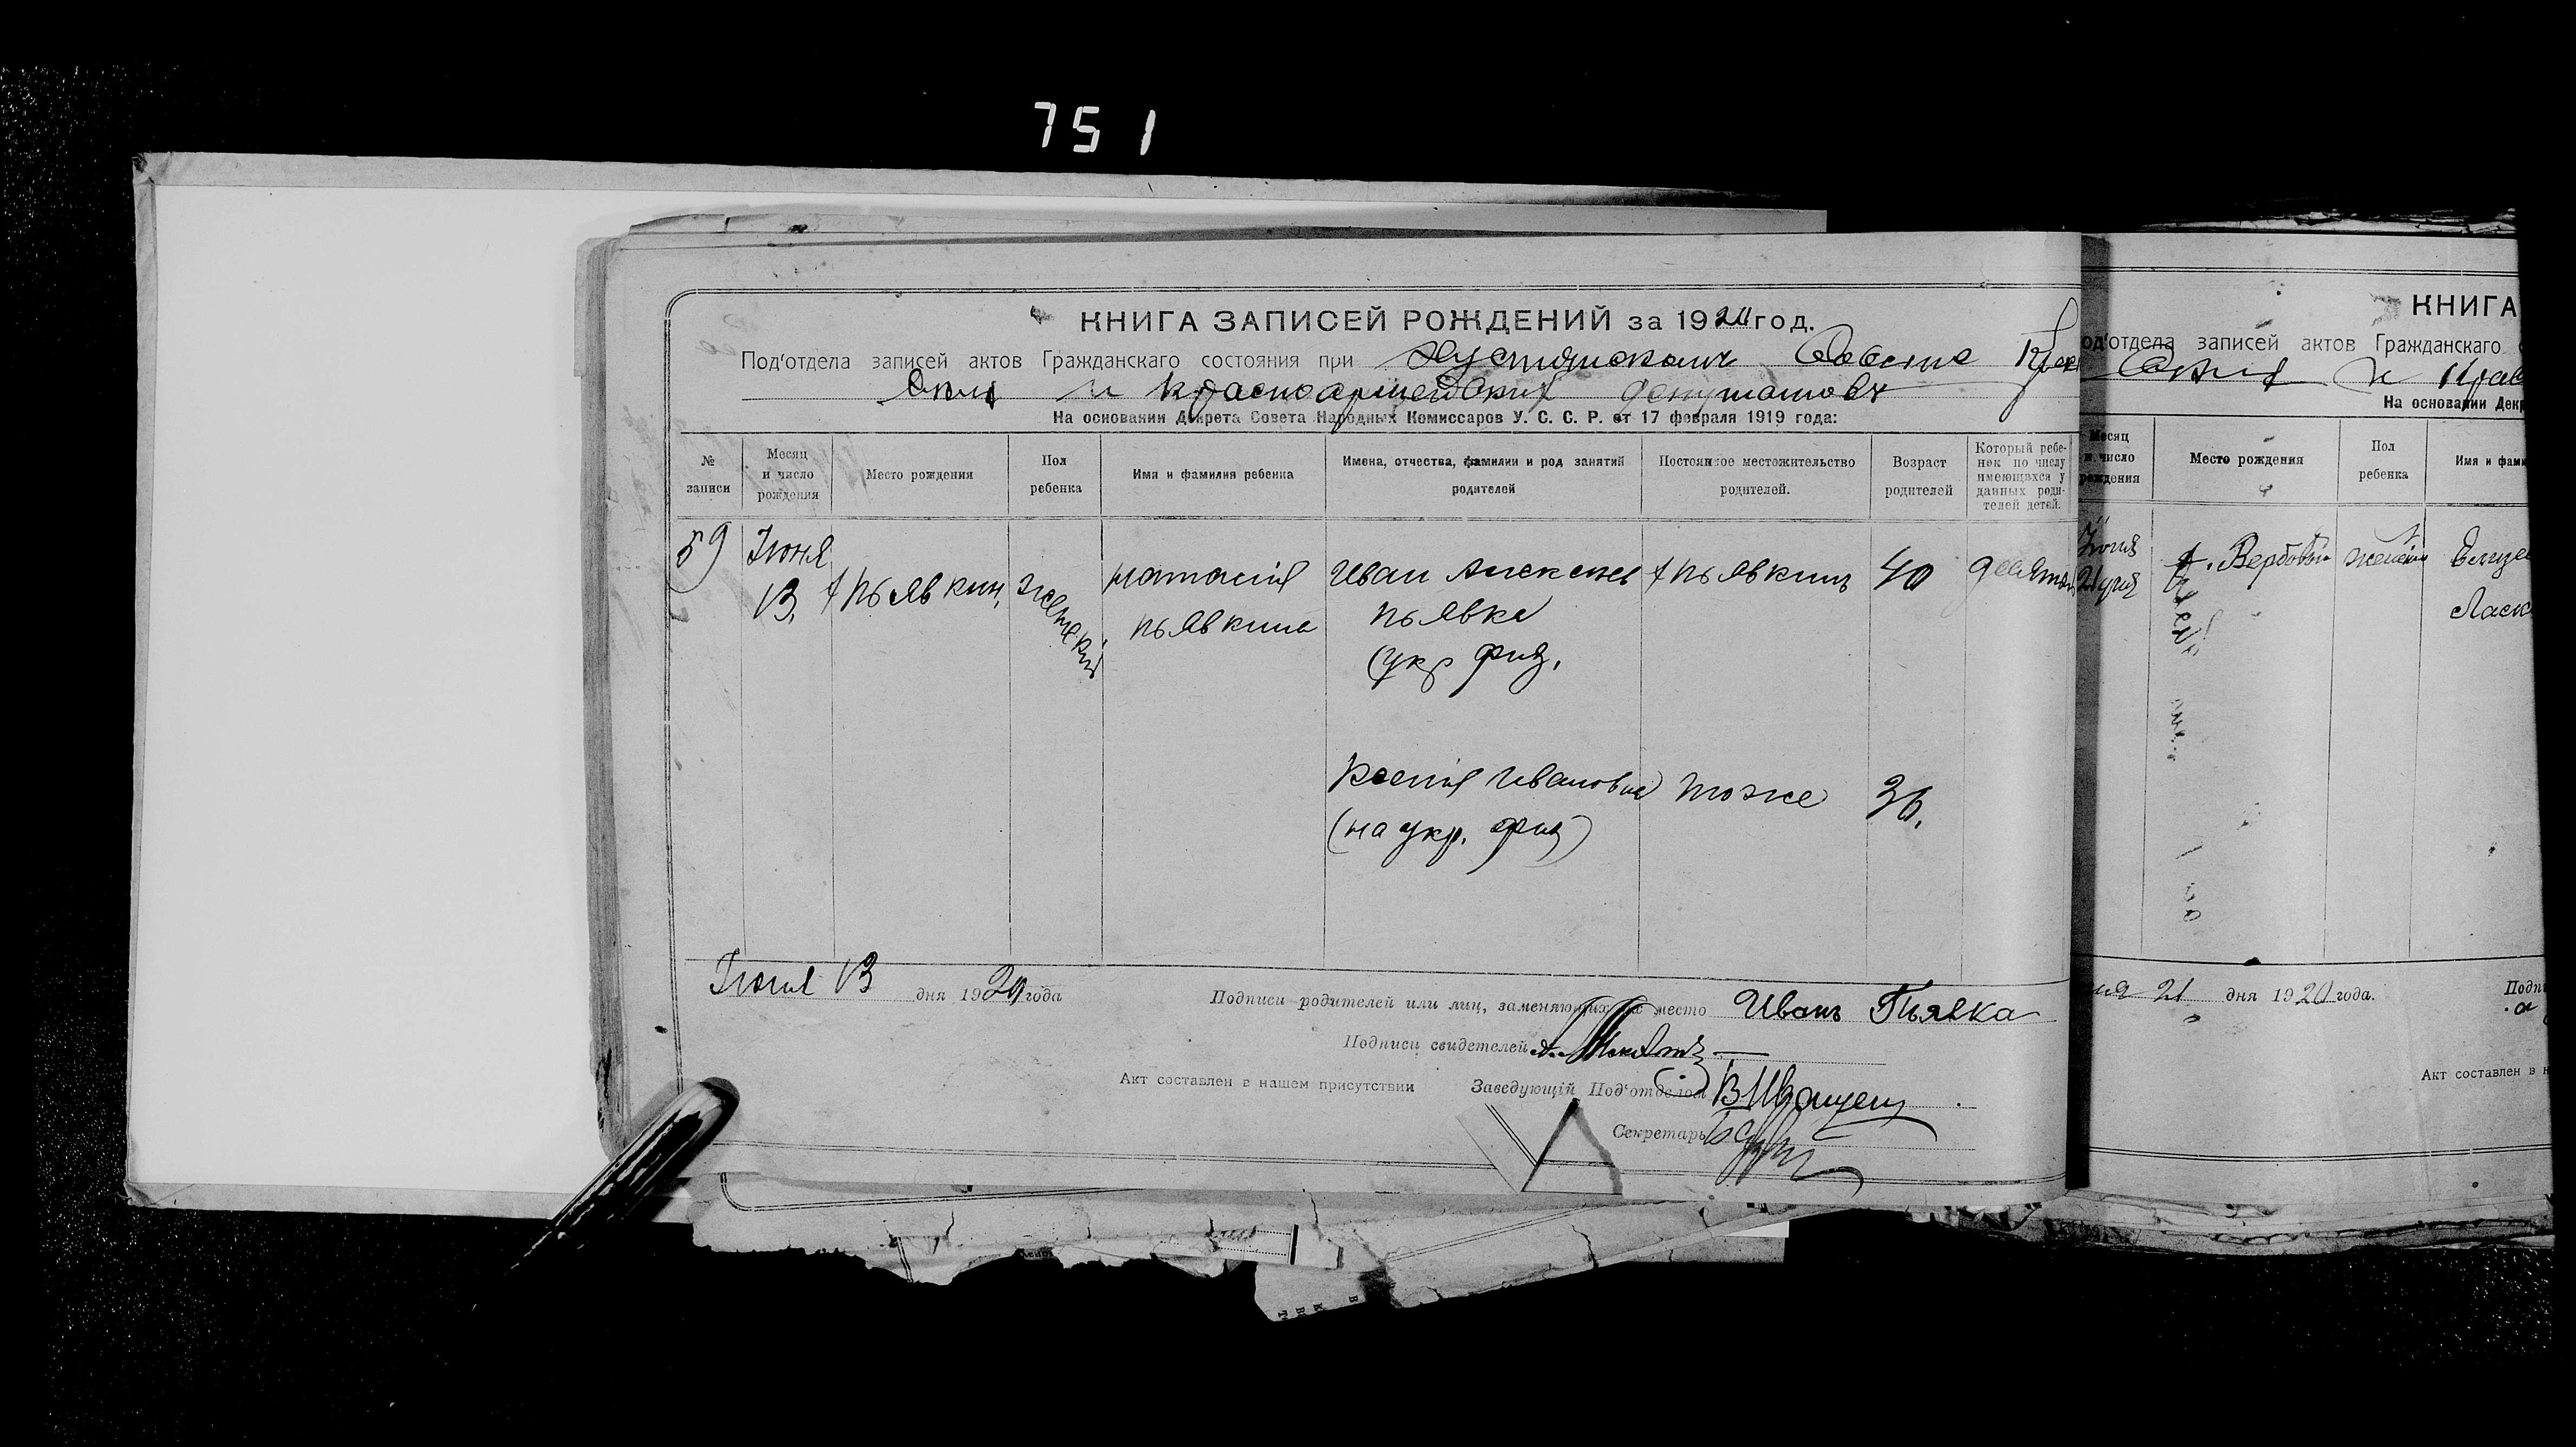 751
КНИГА ЗАПИСЕЙ РОЖДЕНИЙ за 1920 год.
Под'отдела записей актов Гражданскаго состояния при Совете
и красноармейских депутатовъ
На основании Декрета Совета Народных Комиссаров У. С. С. Р. от 17 февраля 1919 года:
№ записи
Месяц и число рождения
Место рождения
Пол ребенка
Имя и фамилия ребенка
Имена, отчества, фамилии и род занятий родителей
Постоянное местожительство родителей.
Возраст родителей
Который ребенок по числу имеющихся у данных родителей детей.
59
Июня
13,
х пьявкин,
женский
наталия
пьявкина
Иван Алексеев
пьявка
(укр физ.
х пьявкинъ
40
девятый
Ксения Ивановна
(на укр. физ)
тоже
36,
Июня 13 дня 1920 года
Подписи родителей или лиц, заменяющих их место Иванъ Пьявка
Подписи свидетелей
Акт составлен в нашем присутствии Заведующій Под'отделом
Секретарь
КНИГА
од'отдела записей актов Гражданскаго
и Крас
На основании Дек
Месяц и число рождения
Место рождения
Пол ребенка
Имя и фами
Июня
21 дня
х. Вербовый
женский
Ласк
21 дня 1920 года.
Подп
Акт составлен в н